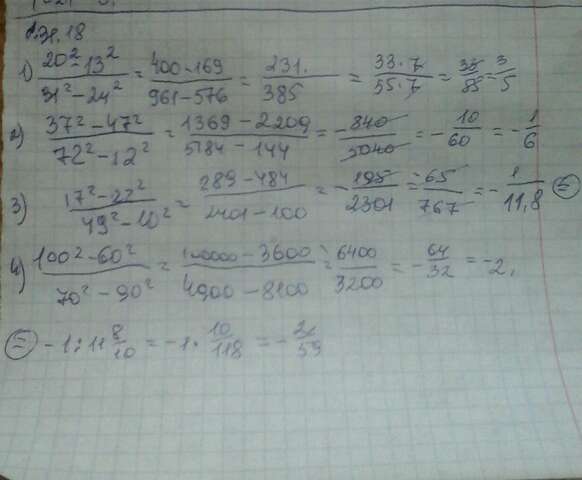 1) (20² - 13²)/(31² - 24²) = (400 - 169)/(961 - 576) = 231/385 = (33 · 7)/(55 · 7) = 33/55 = 3/5
2) (37² - 47²)/(72² - 12²) = (1369 - 2209)/(5184 - 144) = -840/5040 = -10/60 = -1/6
3) (17² - 22²)/(49² - 10²) = (289 - 484)/(2401 - 100) = -195/2301 = -65/767 = -1/11,8 =
4) (100² - 60²)/(70² - 90²) = (10000 - 3600)/(4900 - 8100) = 6400/3200 = -64/32 = -2.
= -1 : 11 8/10 = -1 · 10/118 = -5/59